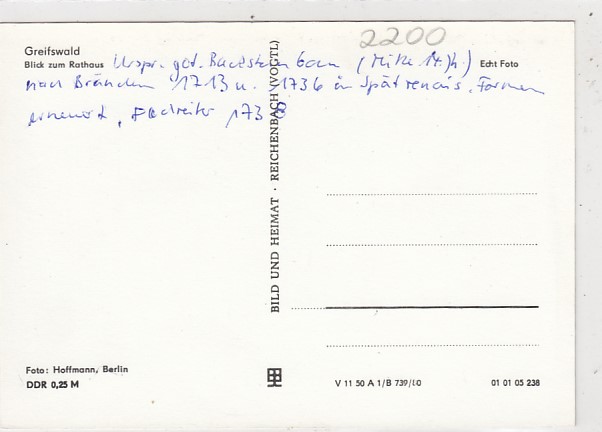 2200
Greifswald
Blick zum Rathaus
Urspr. got. Backsteinbau (Mitte 14. Jh.)
Echt Foto
nach Bränden 1713 u. 1736 in Spätrenais. Formen
erneuert, Dachreiter 1738
BILD UND HEIMAT · REICHENBACH (VOGTL)
Foto: Hoffmann, Berlin
DDR 0,25 M
V 11 50 A 1/B 739/
01 01 05 238